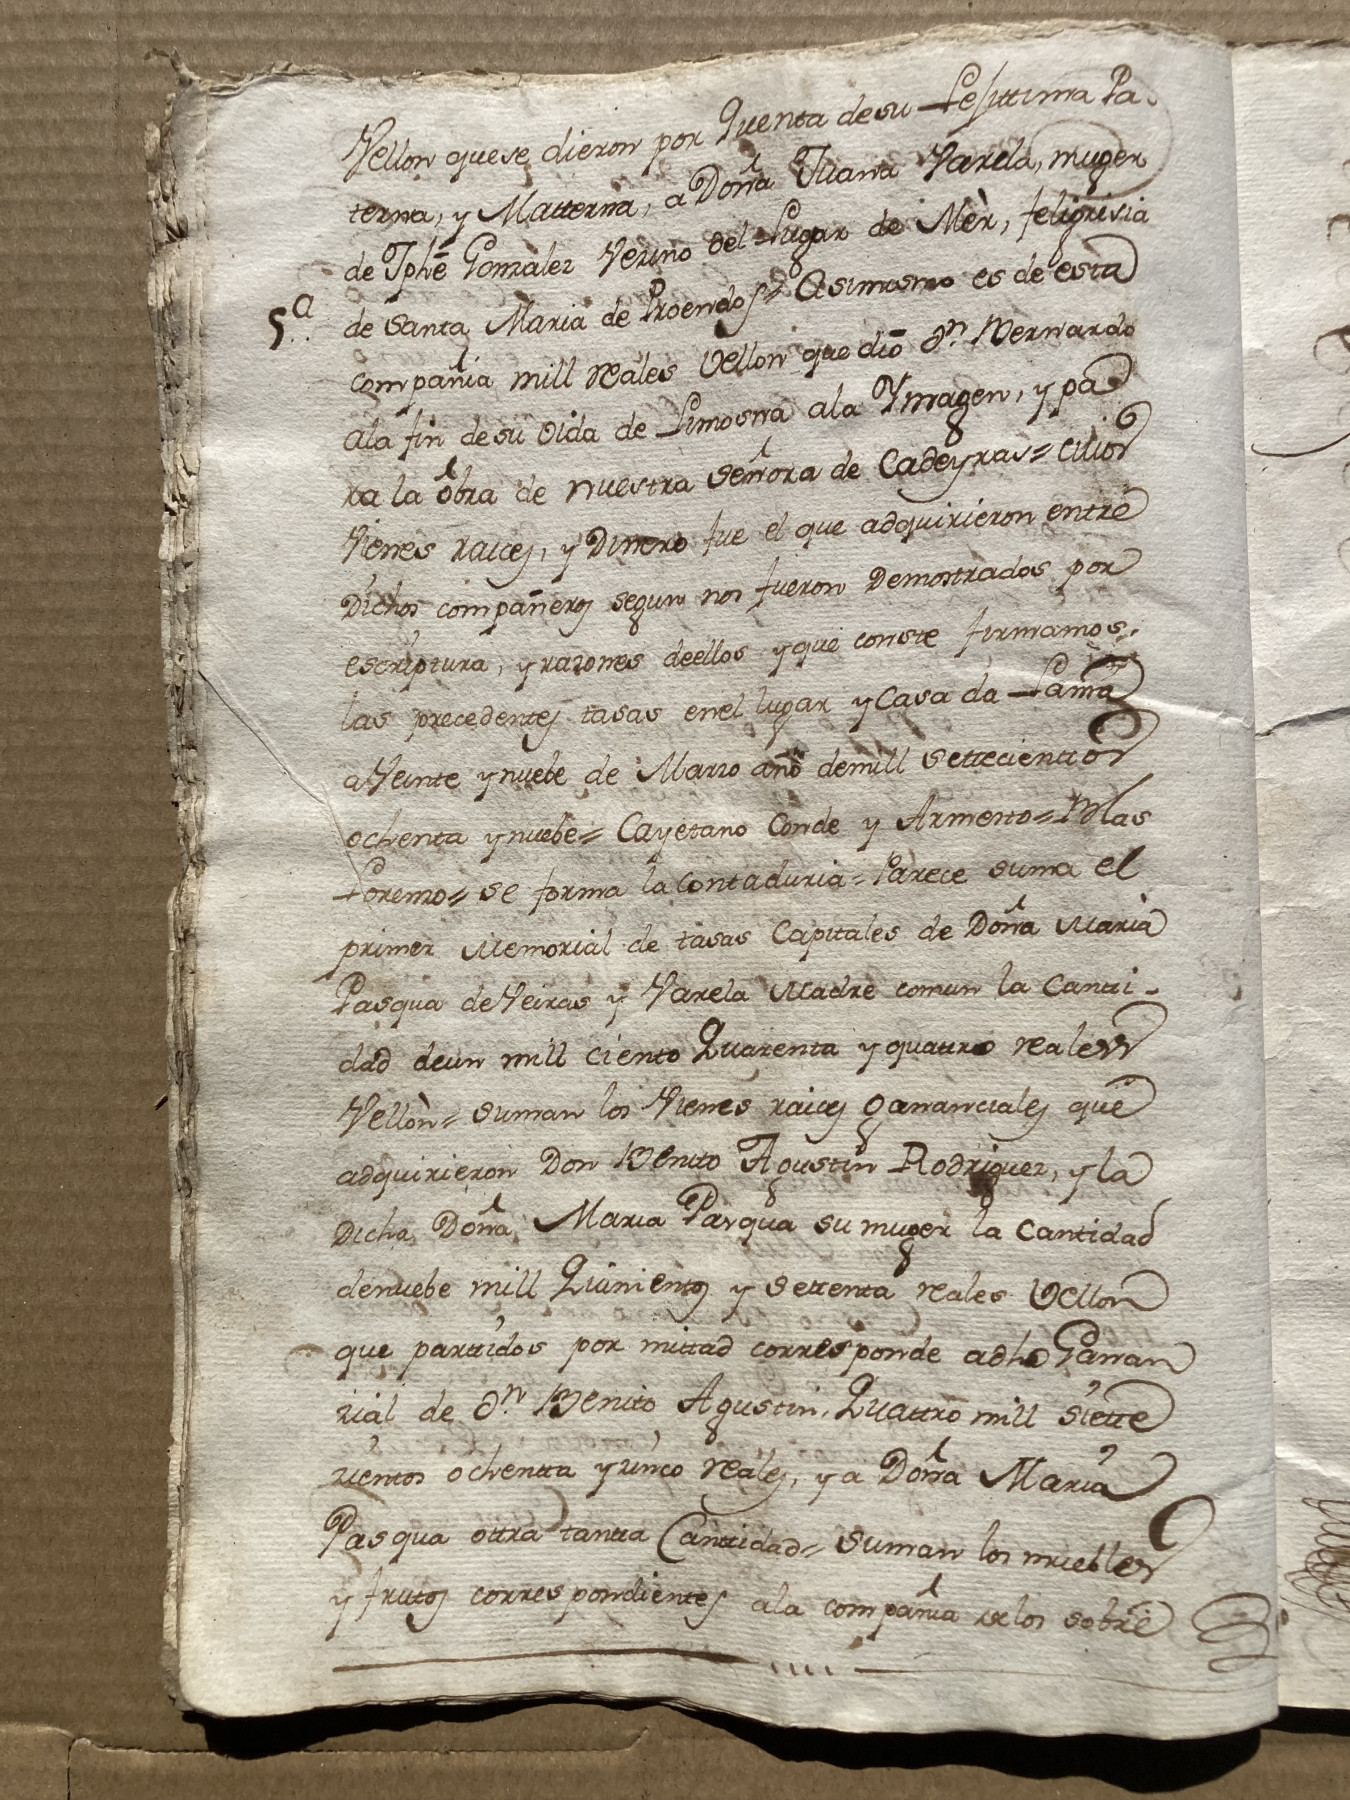 Vellon que se dieron por Quenta de su Lejittima Pa-
terna, y Matterna, a Doña Juana Varela, muger
de Jphē Gonzalez Vezino del Lugar de Mèr, feligresia
de Santa Maria de Proendos = Asimismo es de esta
5ª
compañia mill reales Vellon que dio Dn. Bernardo
a la fin de su vida de Limosna a la Ymagen, y pa
ra la obra de nuestra Señora de Cadeyras =
Vienes raices, y Dinero fue el que adquirieron entre
Dichos compañeros segun nos fueron Demostrados por
escriptura, y razones de ellos y que conste firmamos
las precedentes tasas en el lugar y Casa da Lama
a Veinte y nuebe de Marzo año de mill settecientos
ochenta y nuebe = Cayetano Conde y Armesto = Blas
Lorenzo = se forma la Contaduria = Parece suma el
primer Memorial de tasas Capitales de Doña Maria
Pasqua de Veiras y Varela Madre comun la Canti-
dad de un mill ciento Quarenta y quattro reales
Vellòn = suman los Vienes raices gananciales que
adquirieron Don Benito Agustin Rodriguez, y la
Dicha Doña Maria Pasqua su muger la Cantidad
de nuebe mill Quinientos y settenta reales Vellon
que partidos por mittad corresponde a dho Ganan
zial de Dn. Benito Agustin, Quattro mill siette
zientos ochentta y zinco reales, y a Doña Maria
Pasqua ottra tantta Canttidad = suman los muebles
y frutos correspondientes a la compañia de los sobre